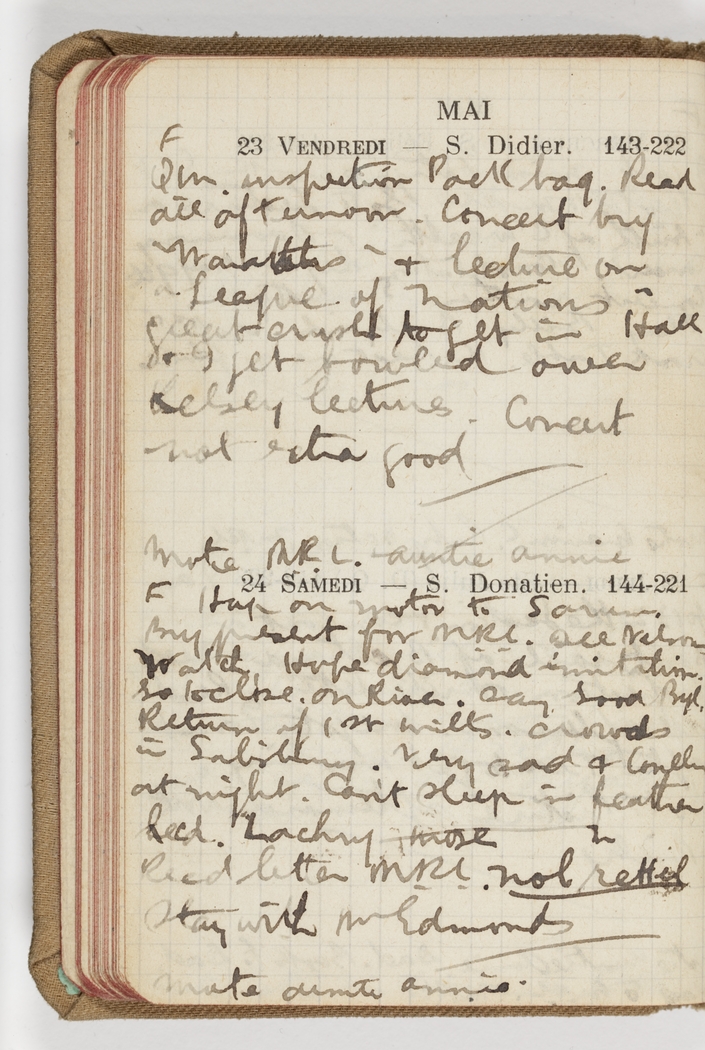 MAI
F
23 VENDREDI — S. Didier. 143-222
QM. inspection Pack bag. Read
all afternoon. Concert by
& lecture on
"League of Nations"
great crush to get in Hall
So I get bowled over
Kelsey lectures. Concert
not extra good
Mate MRL. auntie annie
24 SAMEDI — S. Donatien. 144-221
F Hop on motor to Sarum.
Buy present for MRL. See Nelson
Watch Hope diamond imitation.
on River. Say Good
Return of 1st Wilts. Crowds
in Salisbury. Very sad &
at night. Can't sleep in feather
bed.
Recd letter MRL. not
Stay with Mr Edmonds
Mate auntie annie.